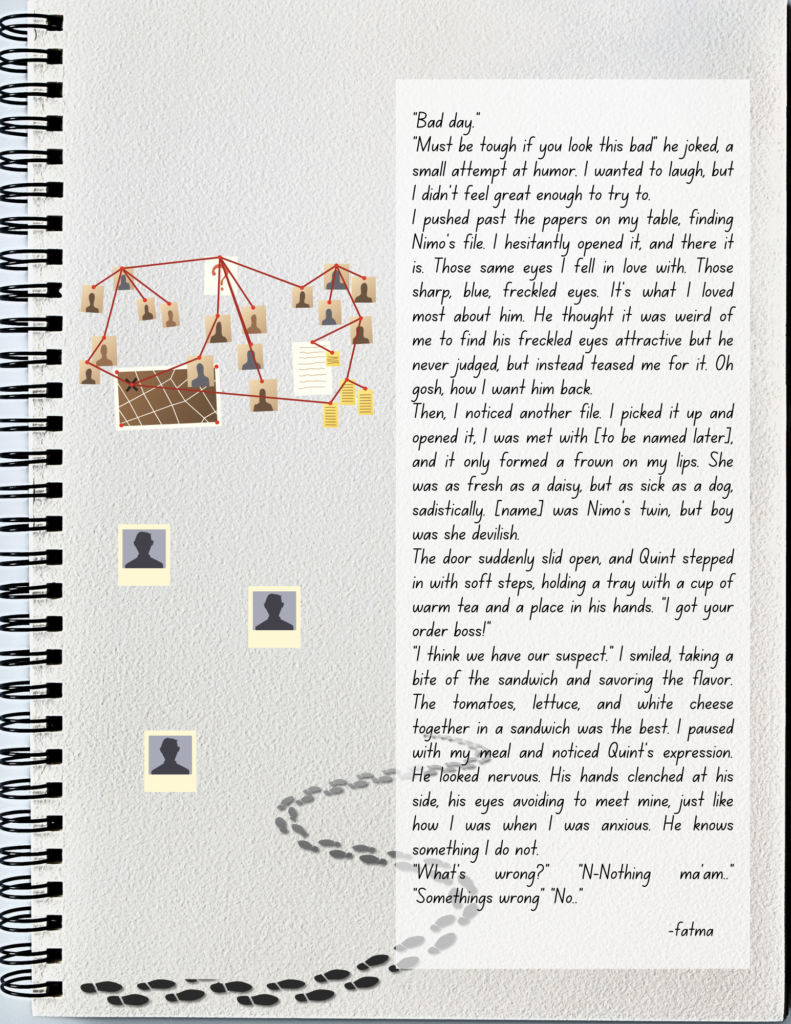 "Bad day."
"Must be tough if you look this bad" he joked, a
small attempt at humor. I wanted to laugh, but
I didn't feel great enough to try to.
I pushed past the papers on my table, finding
Nimo's file. I hesitantly opened it, and there it
is. Those same eyes I fell in love with. Those
sharp, blue, freckled eyes. It's what I loved
most about him. He thought it was weird of
me to find his freckled eyes attractive but he
never judged, but instead teased me for it. Oh
gosh, how I want him back.
Then, I noticed another file. I picked it up and
opened it, I was met with [to be named later],
and it only formed a frown on my lips. She
was as fresh as a daisy, but as sick as a dog,
sadistically. [name] was Nimo's twin, but boy
was she devilish.
The door suddenly slid open, and Quint stepped
in with soft steps, holding a tray with a cup of
warm tea and a place in his hands. "I got your
order boss!"
"I think we have our suspect." I smiled, taking a
bite of the sandwich and savoring the flavor.
The tomatoes, lettuce, and white cheese
together in a sandwich was the best. I paused
with my meal and noticed Quint's expression.
He looked nervous. His hands clenched at his
side, his eyes avoiding to meet mine, just like
how I was when I was anxious. He knows
something I do not.
"What's wrong?" "N-Nothing ma'am.."
"Somethings wrong" "No.."
-fatma